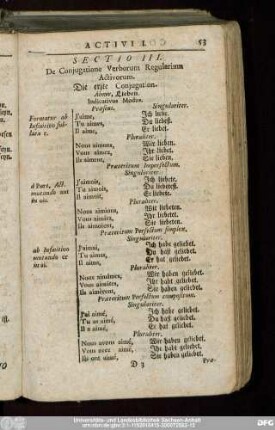 ACTIVI. 53
SECTIO III.
De Conjugatione Verborum Regularium
Activorum.
Die erste Conjugation.
Aimer, Lieben.
Indicativus Modus.
Præsens. Singulariter.
J'aime, Ich liebe.
Tu aimes, Du liebest.
Il aime, Er liebet.
Pluraliter.
Nous aimons, Wir lieben.
Vous aimez, Ihr liebet.
Ils aiment, Sie lieben.
Præteritum Imperfectum.
Singulariter.
J'aimois, Ich liebete.
Tu aimois, Du liebetest.
Il aimoit, Er liebete.
Pluraliter.
Nous aimions, Wir liebeten.
Vous aimiez, Ihr liebetet.
Ils aimoient, Sie liebeten.
Præteritum Perfectum simplex.
Singulariter.
ab Infinitivo J'aimai, Ich habe geliebet.
mutando er Tu aimas, Du hast geliebet.
in ai. Il aima, Er hat geliebet.
Pluraliter.
Nous aimâmes, Wir haben geliebet.
Vous aimâtes, Ihr habt geliebet.
Ils aimèrent, Sie haben geliebet.
Præteritum Perfectum compositum.
Singulariter.
J'ai aimé, Ich habe geliebet.
Tu as aimé, Du hast geliebet.
Il a aimé, Er hat geliebet.
Pluraliter.
Nous avons aimé, Wir haben geliebet.
Vous avez aimé, Ihr habt geliebet.
Ils ont aimé, Sie haben geliebet.
D 3 Præ-
Universitäts- und Landesbibliothek Sachsen-Anhalt